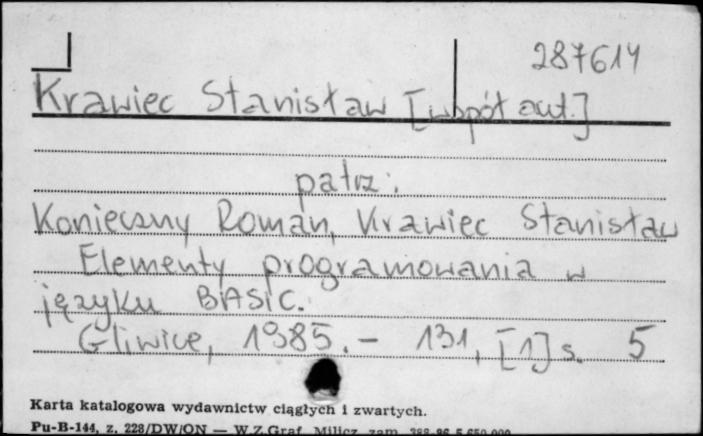 287614
Krawiec Stanisław [współaut.]
patrz:
Konieczny Roman, Krawiec Stanisław
Elementy programowania w
języku BASIC.
Gliwice, 1985. - 131, [1] s. 5
Karta katalogowa wydawnictw ciągłych i zwartych.
Pu-B-144, z. 228/DW/ON — W.Z.Graf. Milicz, zam.